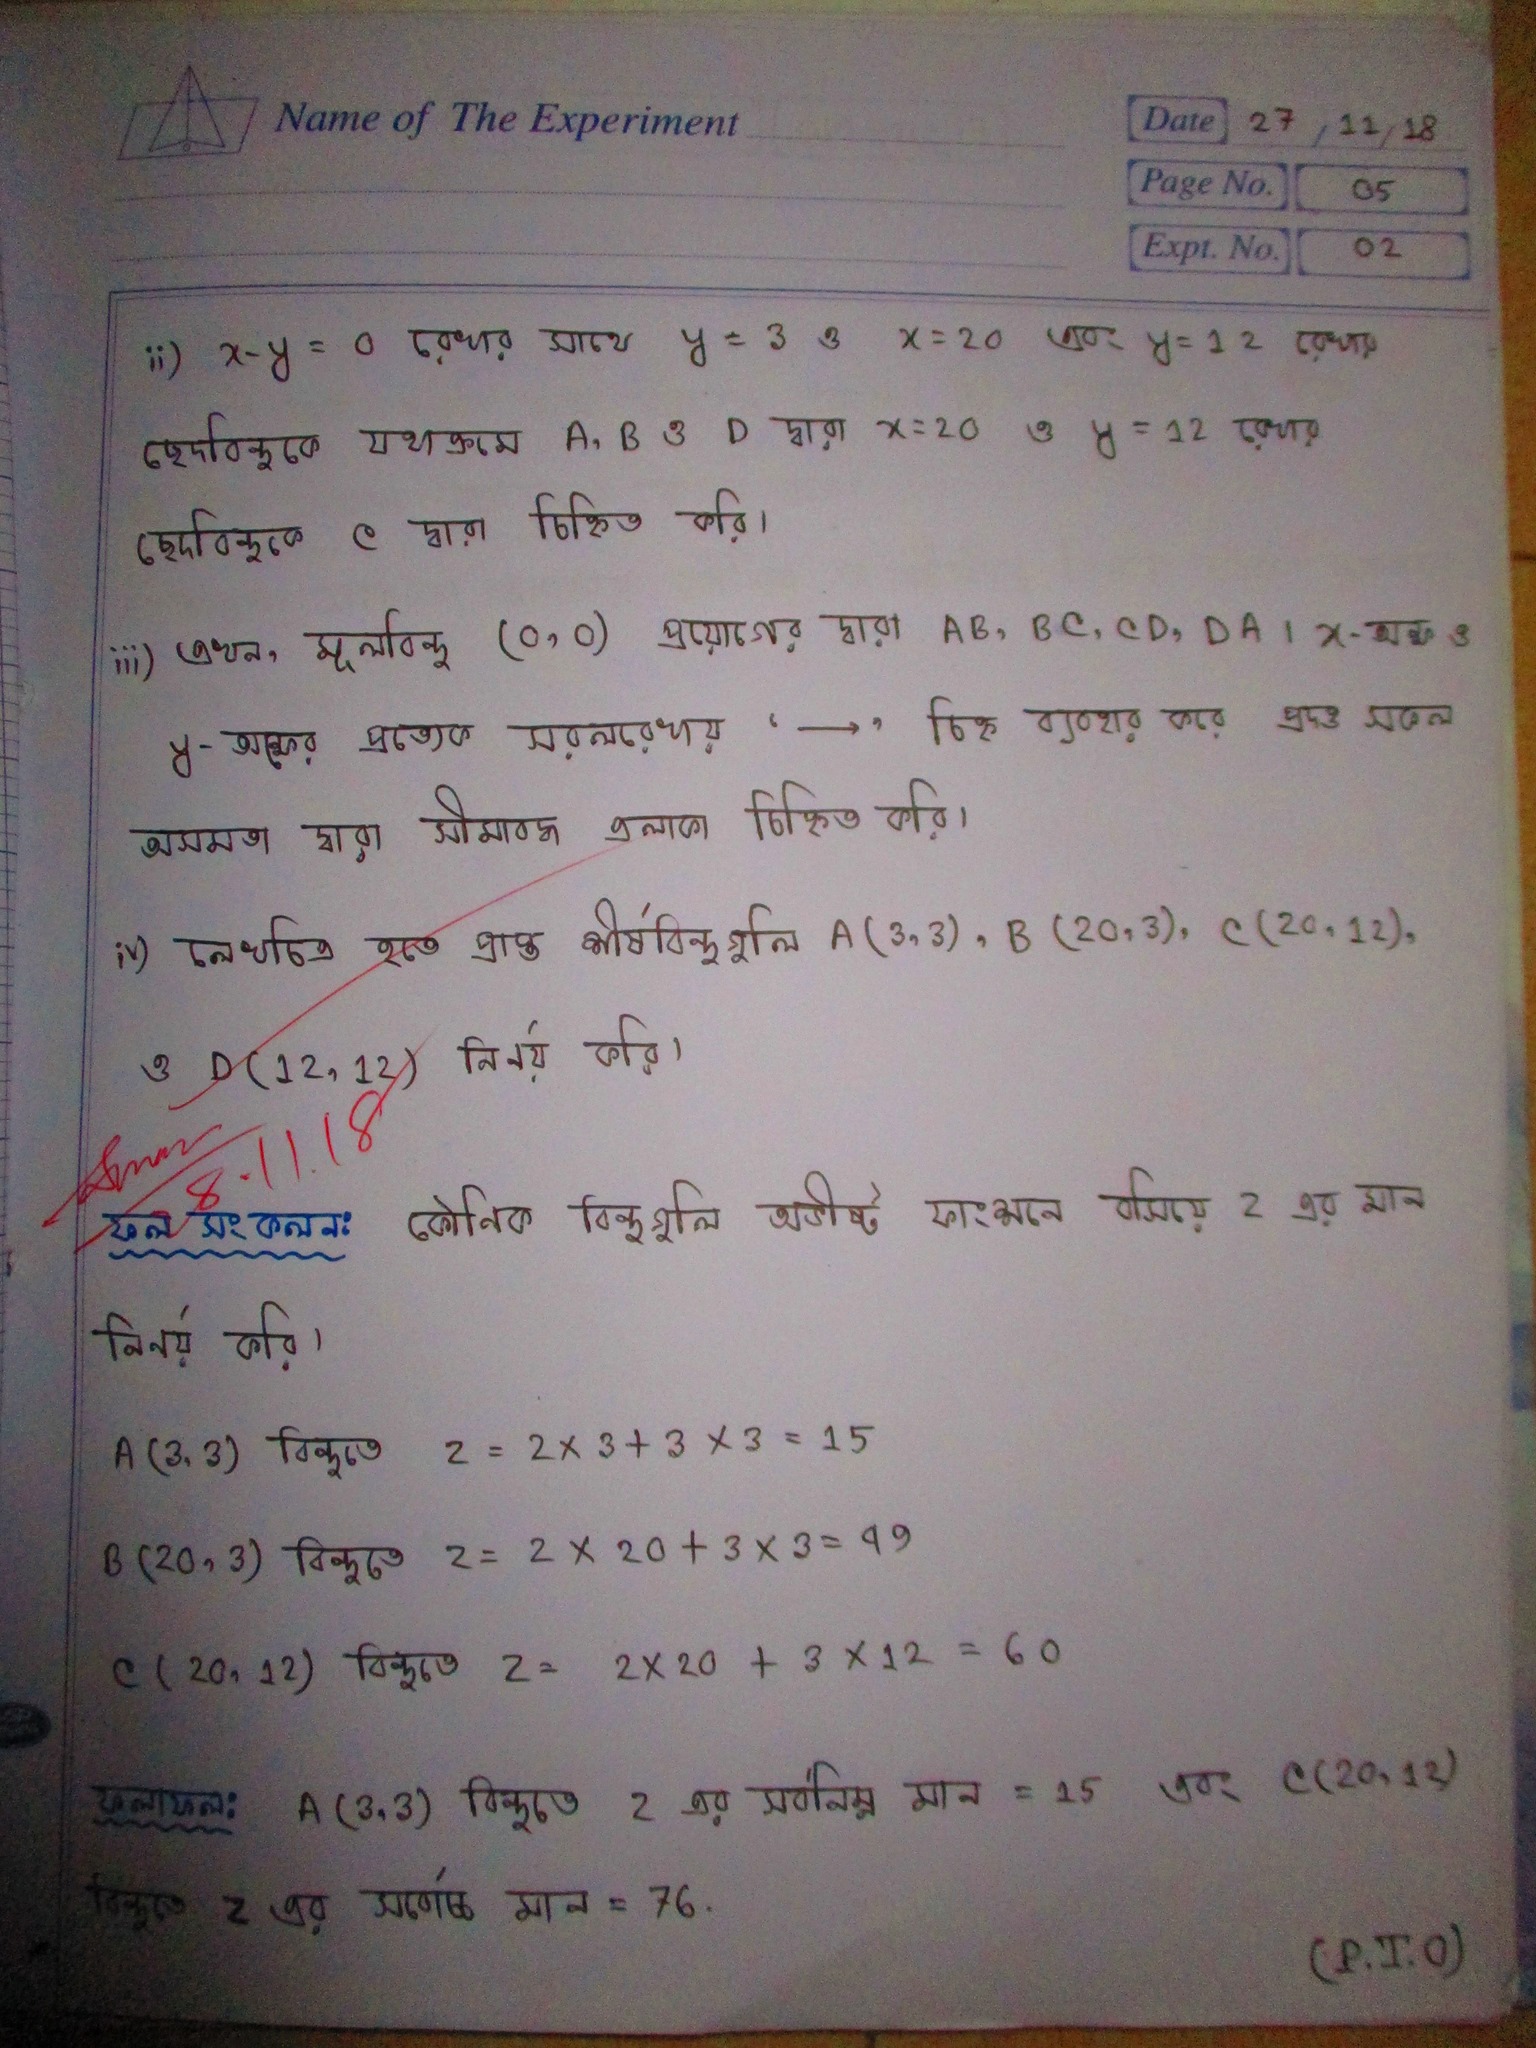 Name of The Experiment
Date 27/11/18
Page No. 05
Expt. No. 02
ii) x-y = 0 রেখার সাথে y = 3 ও x = 20 এবং y = 12 রেখার
ছেদবিন্দুকে যথাক্রমে A, B ও D দ্বারা x = 20 ও y = 12 রেখার
ছেদবিন্দুকে C দ্বারা চিহ্নিত করি।
iii) এখন, মূলবিন্দু (0,0) প্রয়োগের দ্বারা AB, BC, CD, DA । x-অক্ষ ও
y-অক্ষের প্রত্যেক সরলরেখায় ‘→’ চিহ্ন ব্যবহার করে প্রদত্ত সকল
অসমতা দ্বারা সীমাবদ্ধ এলাকা চিহ্নিত করি।
iv) লেখচিত্র হতে প্রাপ্ত শীর্ষবিন্দুগুলি A(3,3), B(20,3), C(20,12),
ও D(12,12) নির্ণয় করি।
8.11.18
ফল সংকলন: কৌনিক বিন্দুগুলি অভীষ্ট ফাংশনে বসিয়ে z এর মান
নির্ণয় করি।
A(3,3) বিন্দুতে z = 2×3+3×3 = 15
B(20,3) বিন্দুতে z = 2×20+3×3 = 49
C(20,12) বিন্দুতে z = 2×20 + 3×12 = 60
ফলাফল: A(3,3) বিন্দুতে z এর সর্বনিম্ন মান = 15 এবং C(20,12)
বিন্দুতে z এর সর্বোচ্চ মান = 76.
(P.T.O)